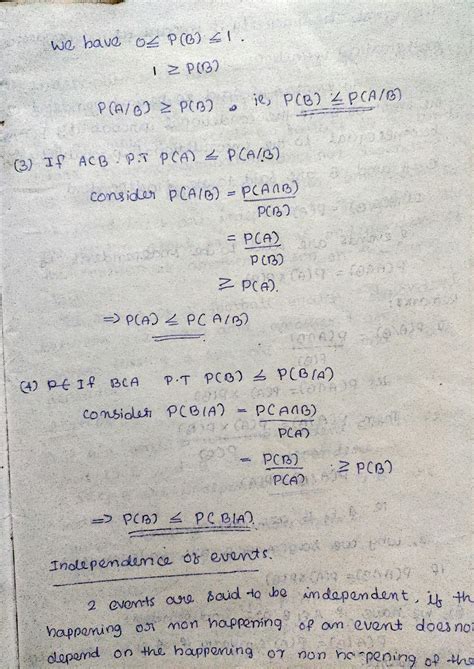 we have 0≤ P(B) ≤ 1.
1 ≥ P(B)
P(A/B) ≥ P(B) . ie, P(B) ≤ P(A/B)
(3) If A⊂B P.T P(A) ≤ P(A/B)
consider P(A/B) = P(A∩B)
P(B)
= P(A)
P(B)
≥ P(A).
⇒ P(A) ≤ P(A/B)
(4) If B⊂A P.T P(B) ≤ P(B/A)
consider P(B/A) = P(A∩B)
P(A)
= P(B) ≥ P(B)
P(A)
⇒ P(B) ≤ P(B/A)
Independence of events.
2 events are said to be independent, if th
happening or non happening of an event does no
depend on the happening or non happening of the